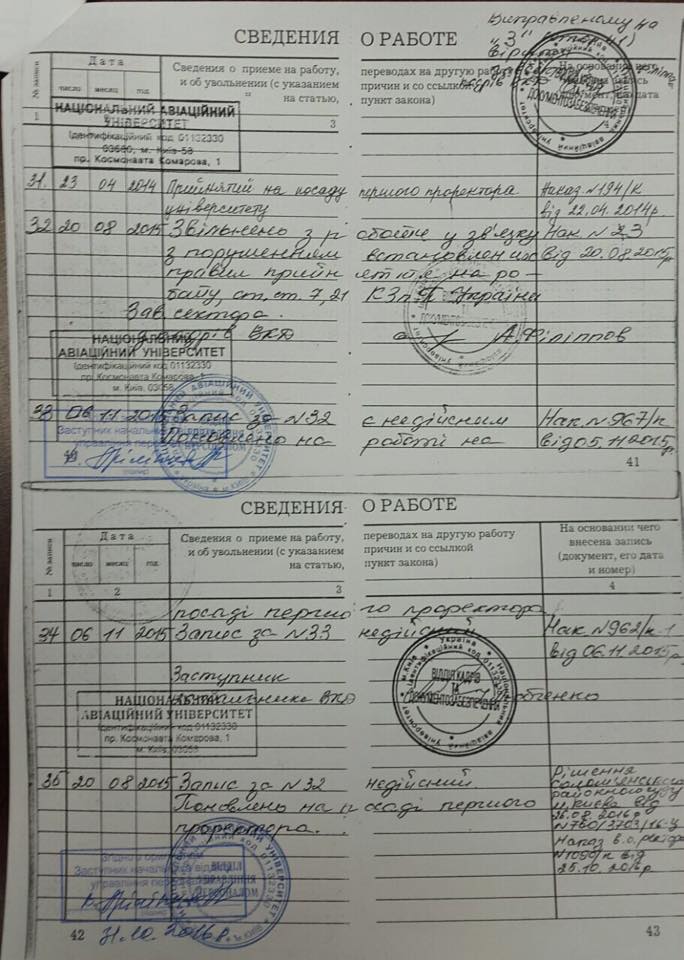 Виправленому на
"3"
СВЕДЕНИЯ О РАБОТЕ
№ записи
Дата
число месяц год
Сведения о приеме на работу, переводах на другую работу
и об увольнении (с указанием причин и со ссылкой
на статью, пункт закона)
На основании чего
запись
дата
1 3
НАЦІОНАЛЬНИЙ АВІАЦІЙНИЙ
УНІВЕРСИТЕТ
Ідентифікаційний код 01132330
03680, м. Київ-58
пр. Космонавта Комарова, 1
ДОКУМЕНТОЗАБЕЗПЕЧЕННЯ
31. 23 04 2014 Прийнятий на посаду першого проректора Наказ №194/к
університету від 22.04.2014р.
32 20 08 2015 Звільнено з роботи у зв'язку Нак. №
з порушенням встановлених від 20.08.2015р.
правил прийняття на ро-
боту, ст.ст. 7, 21 КЗпП України
Зав. сектора
кадрів ВКД А. Філіппов
НАЦІОНАЛЬНИЙ
АВІАЦІЙНИЙ УНІВЕРСИТЕТ
Ідентифікаційний код 01132330
пр. Космонавта Комарова, 1
м. Київ, 03058
33 06 11 2015 Запис за №32 є недійсним Нак. №967/к
Поновлено на роботі на від 05.11.2015р.
Заступник начальника відділу
управління персоналом
41
СВЕДЕНИЯ О РАБОТЕ
№ записи
Дата
число месяц год
Сведения о приеме на работу, переводах на другую работу
и об увольнении (с указанием причин и со ссылкой
на статью, пункт закона)
На основании чего
внесена запись
(документ, его дата
и номер)
1 2 3 4
посаді першого проректора
34 06 11 2015 Запис за №33 недійсний Нак. №962/к-1
від 06.11.2015р.
Заступник
начальника ВКД
ВІДДІЛ КАДРІВ
ТА
ДОКУМЕНТОЗАБЕЗПЕЧЕННЯ
НАЦІОНАЛЬНИЙ
АВІАЦІЙНИЙ УНІВЕРСИТЕТ
Ідентифікаційний код 01132330
пр. Космонавта Комарова, 1
м. Київ, 03058
35 20 08 2015 Запис за №32 недійсний. Рішення
Поновлено на посаді першого Солом'янського
проректора. районного суду
м.Києва від
26.08.2016р
№760/3703/16-ц
Наказ в.о. ректора
№1090/к від
25.10.2016р
Згідно з оригіналом
Заступник начальника відділу
управління персоналом
ВІДДІЛ
УПРАВЛІННЯ
ПЕРСОНАЛОМ
42 31.10.2016р 43